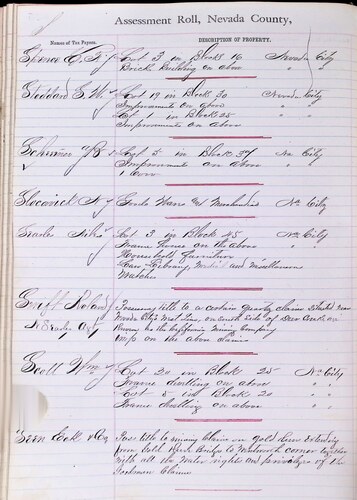 Assessment Roll, Nevada County,
Names of Tax Payers.
DESCRIPTION OF PROPERTY.
Spence Lot 3 in Block 16 Nevada City
Brick Building on above
Stoddard S. W. Lot 19 in Block 30 Nevada City
Improvements on above " "
Lot 1 in Block 25 " "
Improvements on above
Schreiner Lot 5 in Block 37 Na City
Improvements on above " "
1 Cow
Slocovich N Goods Wares and Merchandise Na City
Searles Lot 3 in Block 45 Na City
Frame house on the above " "
Household furniture
Law Library, and Miscellaneous
Watches
Poss title to a certain quartz claim situated near
Nevada City on south side of Deer Creek
the California Mining Company
Imp on the above claim
Scott Wm Lot 20 in Block 25 Na City
Frame dwelling on above " "
Lot 5 in Block 20 " "
Frame dwelling on above " "
Seen Cock & Co. Poss title to mining claim on Gold Run Extending
from Gold Bridge to corner together
with all the water rights and privileges of the
Claims